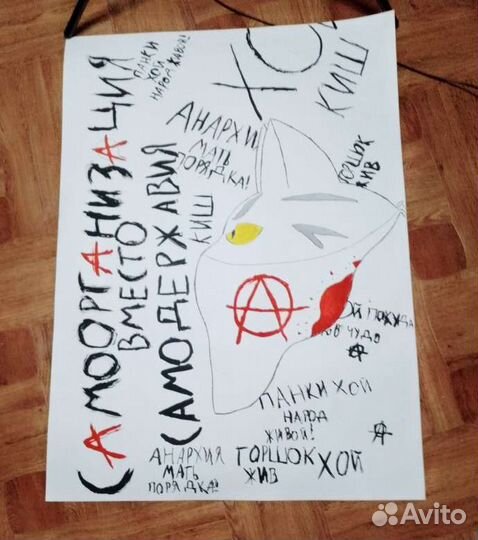 САМООРГАНИЗАЦИЯ
ВМЕСТО
САМОДЕРЖАВИЯ
ПАНКИ
ХОЙ
НАРОД ЖИВОЙ!
ХОЙ
КИШ
АНАРХИ
МАТЬ
ПОРЯДКА!
КИШ
ГОРШОК
ЖИВ
А
ОЙ ПОКУДА
ЧУДО
А
ПАНКИ ХОЙ
НАРОД
ЖИВОЙ!
А
АНАРХИЯ
МАТЬ
ПОРЯДКА!
ГОРШОК
ЖИВ
ХОЙ
Avito